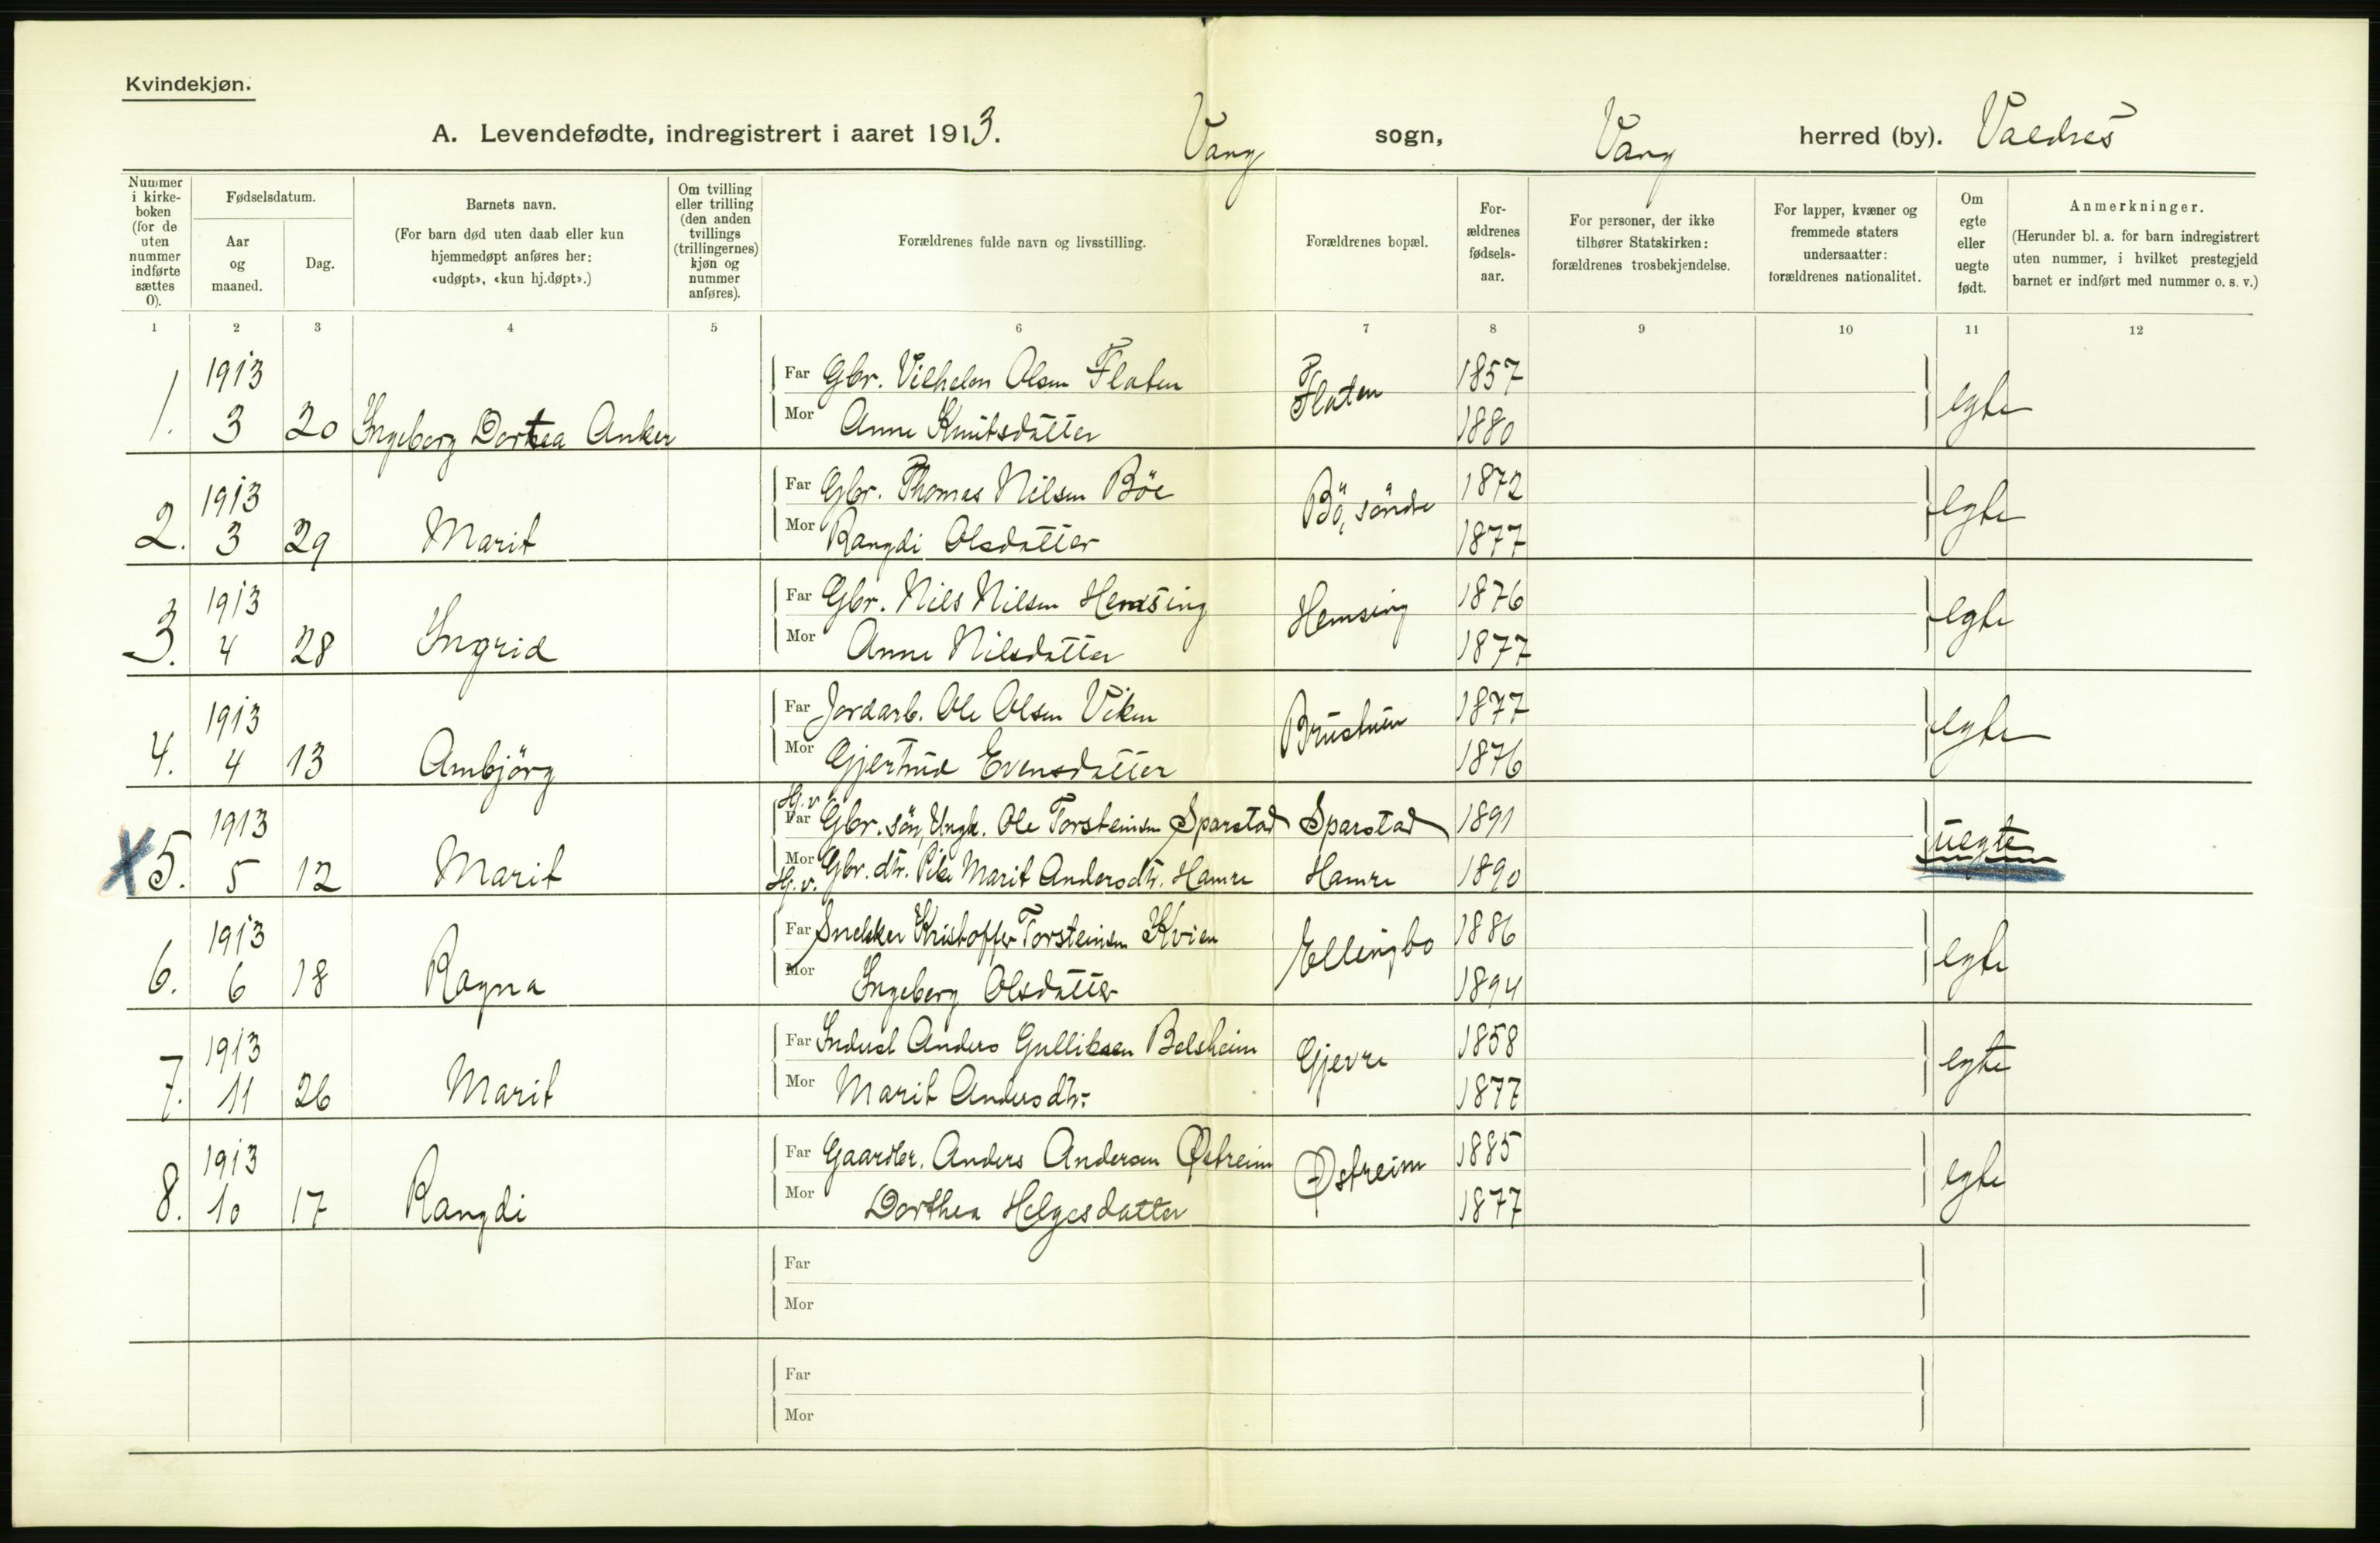 Kvindekjøn.
A. Levendefødte, indregistrert i aaret 1913. Vang sogn, Vang herred (by). Valdres
Nummer i kirke-boken (for de uten nummer indførte sættes 0).
Fødselsdatum.
Aar og maaned.
Dag.
Barnets navn.
(For barn død uten daab eller kun hjemmedøpt anføres her: «udøpt», «kun hj.døpt».)
Om tvilling eller trilling (den anden tvillings (trillingernes) kjøn og nummer anføres).
Forældrenes fulde navn og livsstilling.
Forældrenes bopæl.
For-ældrenes fødsels-aar.
For personer, der ikke tilhører Statskirken: forældrenes trosbekjendelse.
For lapper, kvæner og fremmede staters undersaatter: forældrenes nationalitet.
Om egte eller uegte født.
Anmerkninger.
(Herunder bl. a. for barn indregistrert uten nummer, i hvilket prestegjeld barnet er indført med nummer o. s. v.)
1 2 3 4 5 6 7 8 9 10 11 12
1913 Far Gbr. Vilhelm Olsen Flaten Flaten 1857 egte
1. 3 20 Ingeborg Dortea Anker Mor Anne Knutsdatter 1880
1913 Far Gbr. Thomas Nilsen Böe Bö, söndre 1872 egte
2. 3 29 Marit Mor Rangdi Olsdatter 1877
1913 Far Gbr. Nils Nilsen Hemsing Hemsing 1876 egte
3. 4 28 Ingrid Mor Anne Nilsdatter 1877
1913 Far Jordarb. Ole Olsen Viken Brustuen 1877 egte
4. 4 13 Ambjörg Mor Gjertrud Evensdatter 1876
Hj. v.
1913 Far Gbr. sön, Ungk. Ole Torsteinsen Sparstad Sparstad 1891 uegte
X 5. 5 12 Marit Mor Gbr. dtr. Pike Marit Andersdtr. Hamre Hamre 1890
Hj. v.
1913 Far Snekker Kristoffer Torsteinsen Kvien Ellingbo 1886 egte
6. 6 18 Ragna Mor Ingeborg Olsdatter 1894
1913 Far Inderst Anders Gulliksen Belsheim Gjevre 1858 egte
7. 11 26 Marit Mor Marit Andersdtr. 1877
1913 Far Gaardbr. Anders Andersen Østreim Østreim 1885 egte
8. 10 17 Rangdi Mor Dorthea Helgesdatter 1877
Far
Mor
Far
Mor